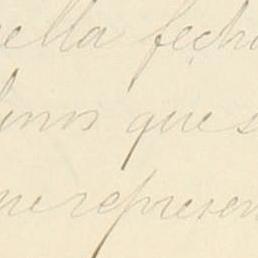 ella fecho
que s
me represen